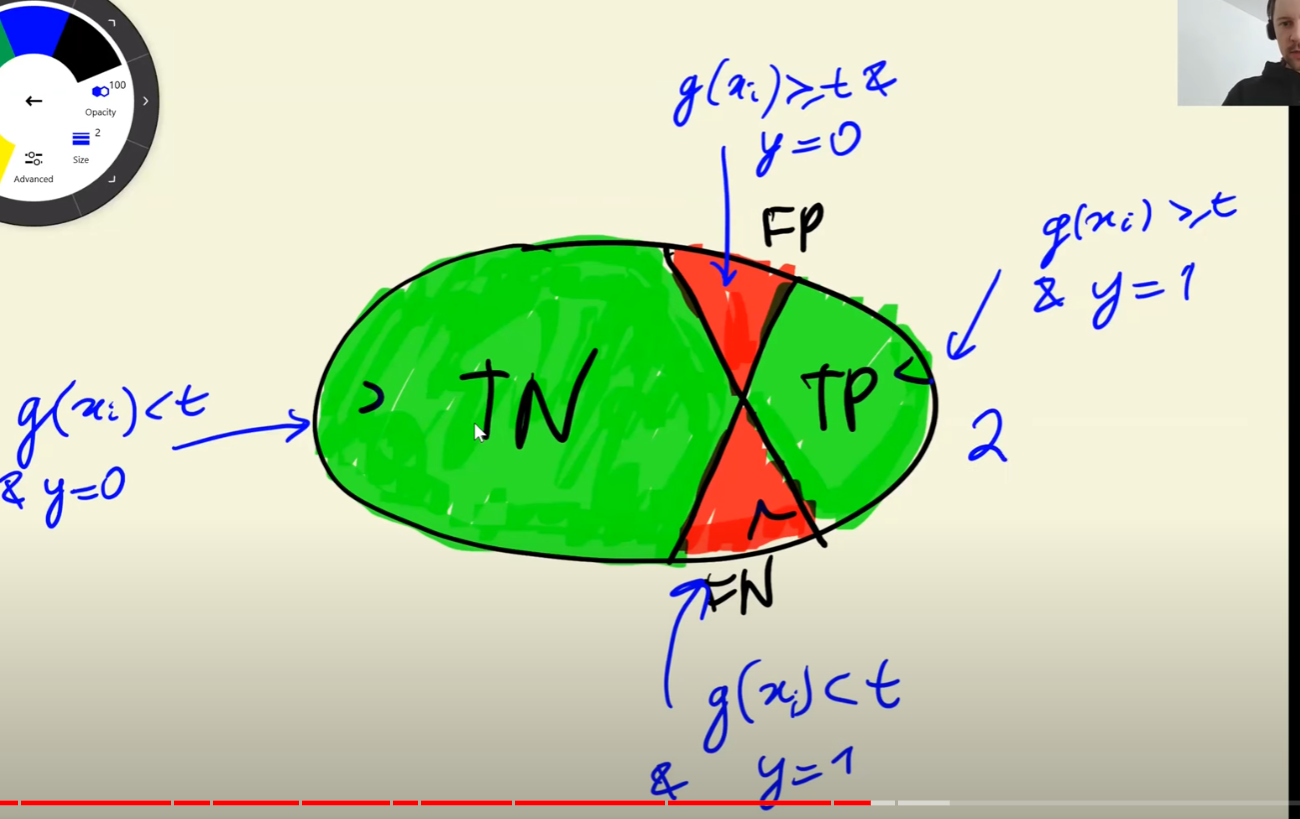 100
Opacity
2
Size
Advanced
g(xᵢ)≥t &
y=0
FP
g(xᵢ)≥t
& y=1
TN
TP
2
g(xᵢ)<t
& y=0
FN
g(xᵢ)<t
& y=1